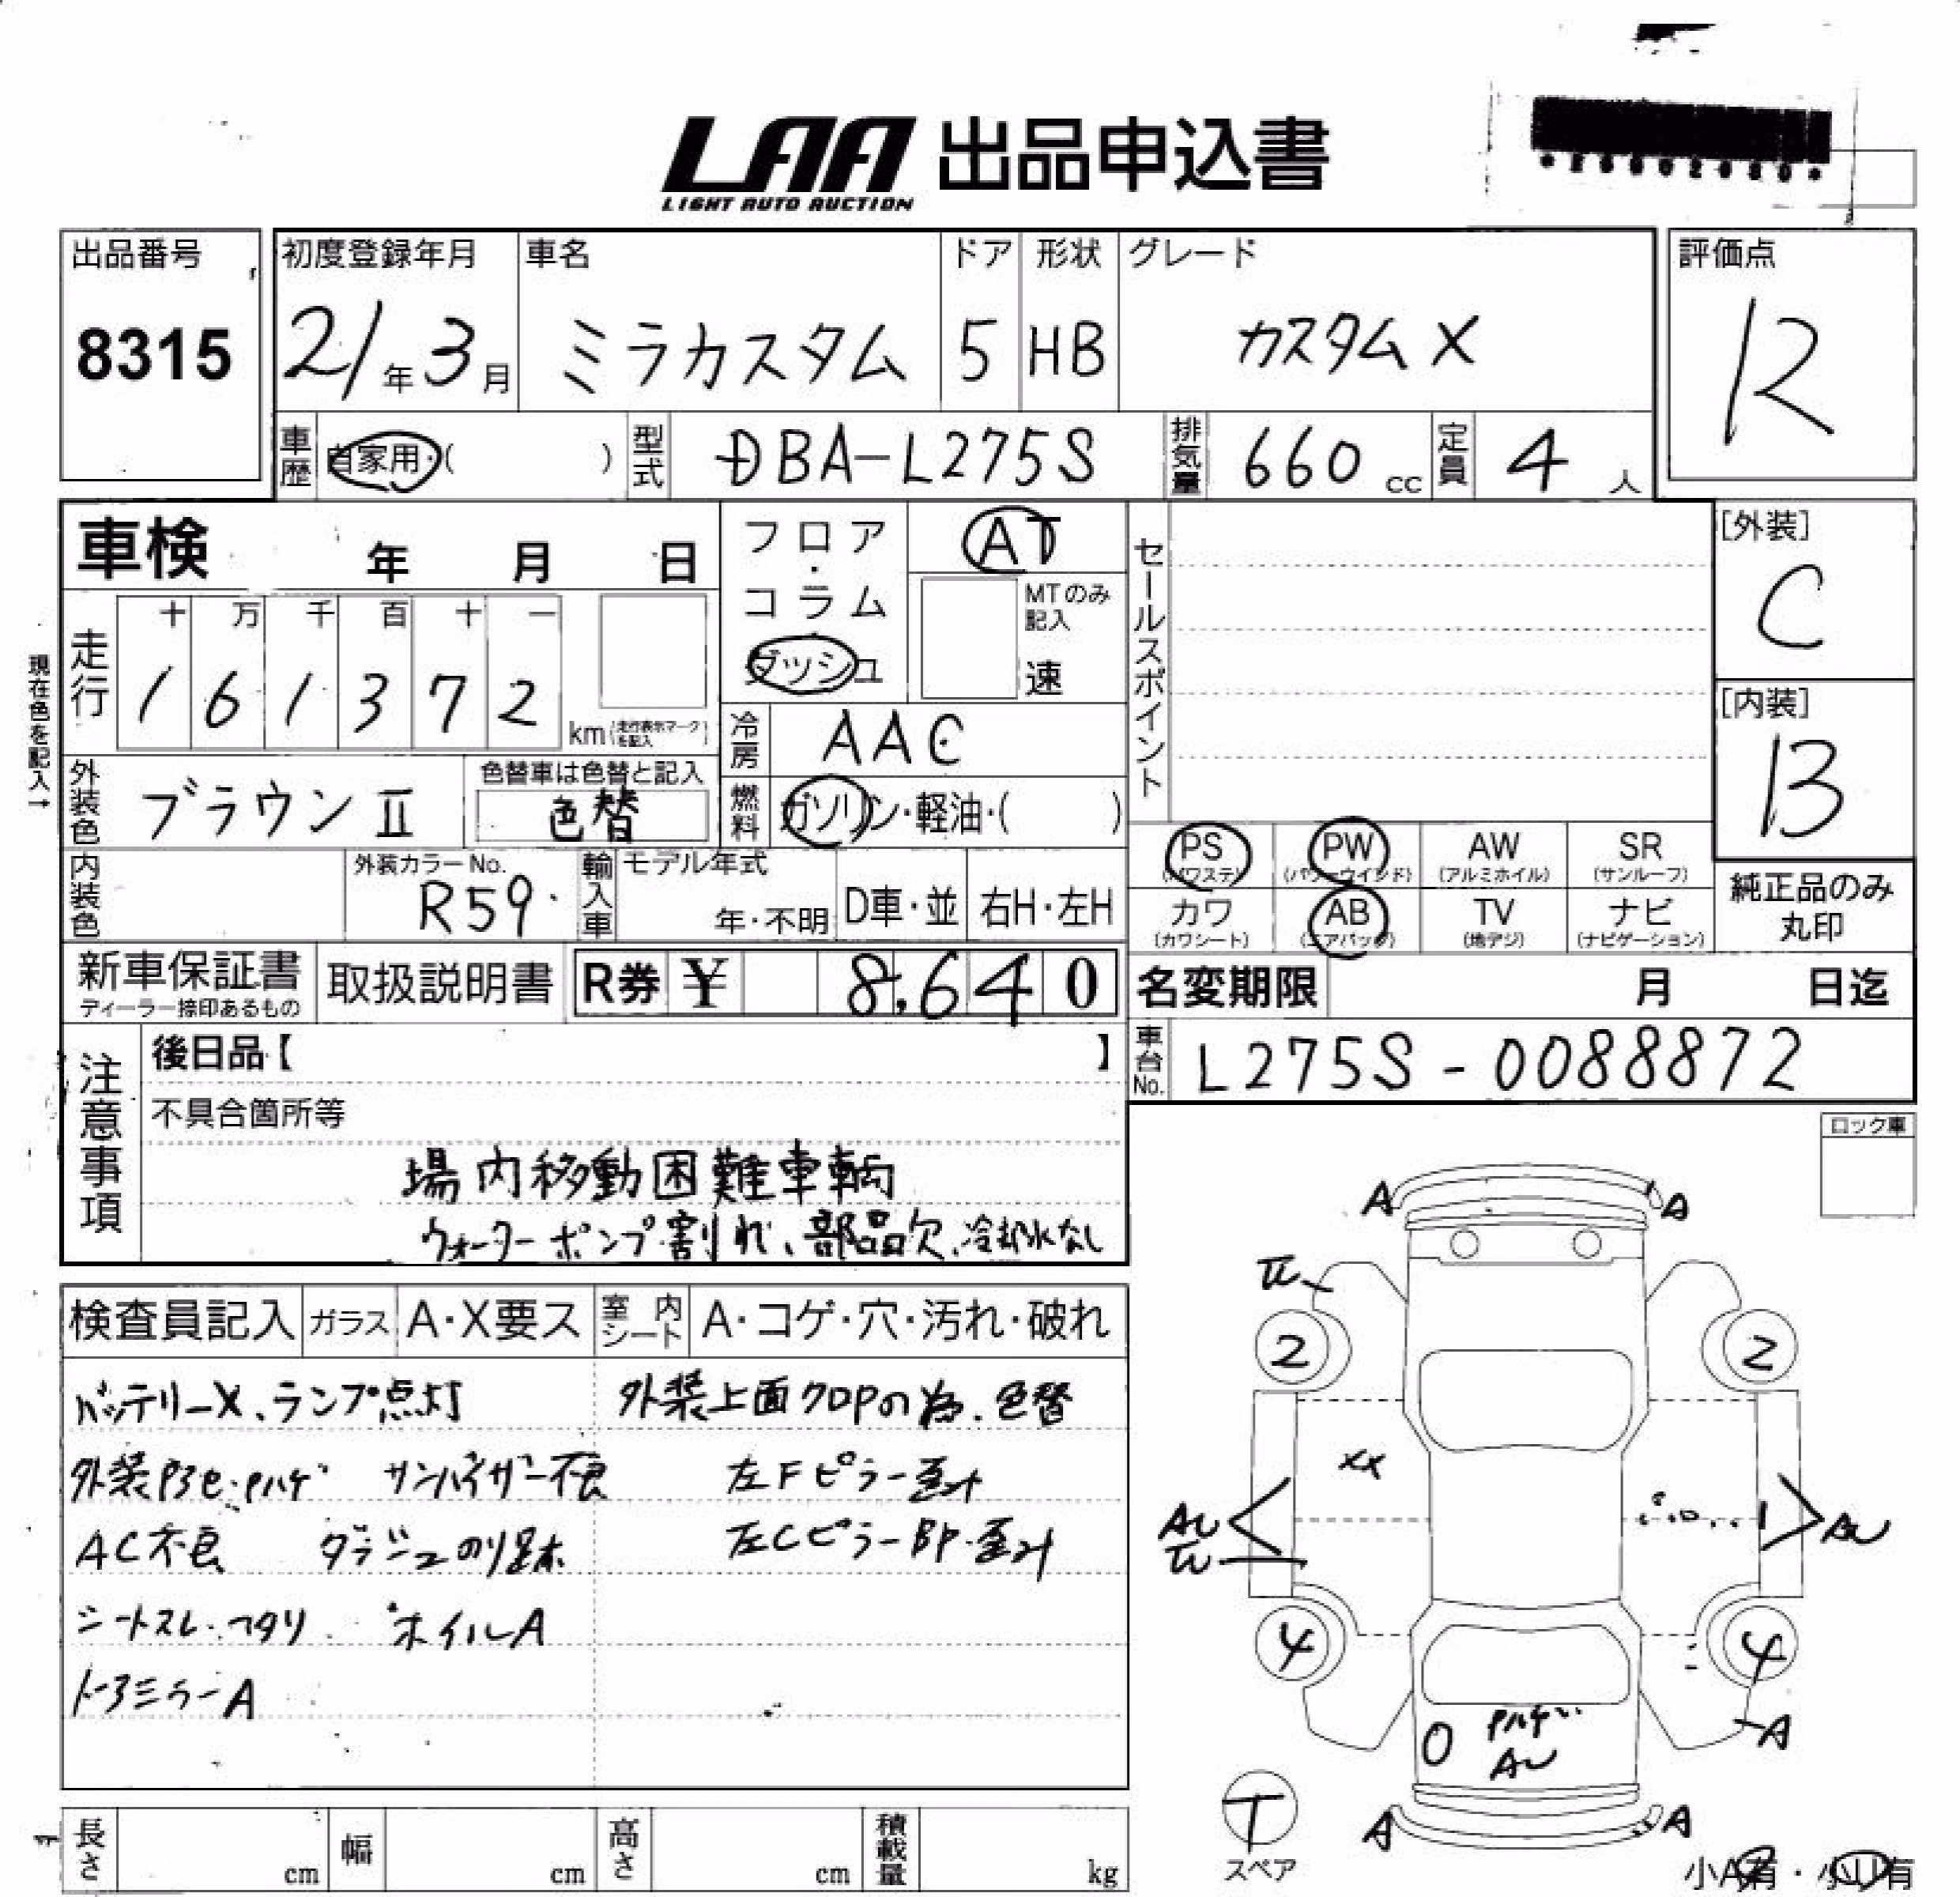 LAA 出品申込書
LIGHT AUTO AUCTION
出品番号
8315
初度登録年月
21年3月
車名
ミラカスタム
ドア
5
形状
HB
グレード
カスタムX
評価点
R
車歴 自家用・( )
型式 DBA-L275S
排気量 660cc
定員 4人
車検 年 月 日
フロア・コラム・ダッシュ
AT
MTのみ記入
速
セールスポイント
[外装]
C
[内装]
B
現在色を記入→
走行
十 万 千 百 十 一
1 6 1 3 7 2
km(走行表示マークを記入)
冷房 AAC
外装色 ブラウンⅡ
色替車は色替と記入
色替
燃料 ガソリン・軽油・( )
内装色
外装カラーNo.
R59
輸入車
モデル年式
年・不明
D車・並
右H・左H
PS (パワステ)
PW (パワーウインド)
AW (アルミホイル)
SR (サンルーフ)
カワ (カワシート)
AB (エアバッグ)
TV (地デジ)
ナビ (ナビゲーション)
純正品のみ
丸印
新車保証書
ディーラー捺印あるもの
取扱説明書
R券 ¥ 8,640
名変期限 月 日迄
車台No. L275S-0088872
注意事項
後日品【 】
不具合箇所等
場内移動困難車輌
ウォーターポンプ割れ、部品欠、冷却水なし
ロック車
検査員記入
ガラス A・X要ス
室内シート A・コゲ・穴・汚れ・破れ
バッテリーX、ランプ点灯
外装上面クロPの為、色替
サンバイザー不良
左Fピラー歪み
AC不良
ダッシュのり跡
左CピラーBP・歪み
シートスレ・ヘタリ
ホイルA
ドアミラーA
A A
2 2
XX
AU
AU
4 4
Pハゲ
AU
A
T
スペア
A A
小A有・小U有
長さ cm
幅 cm
高さ cm
積載量 kg